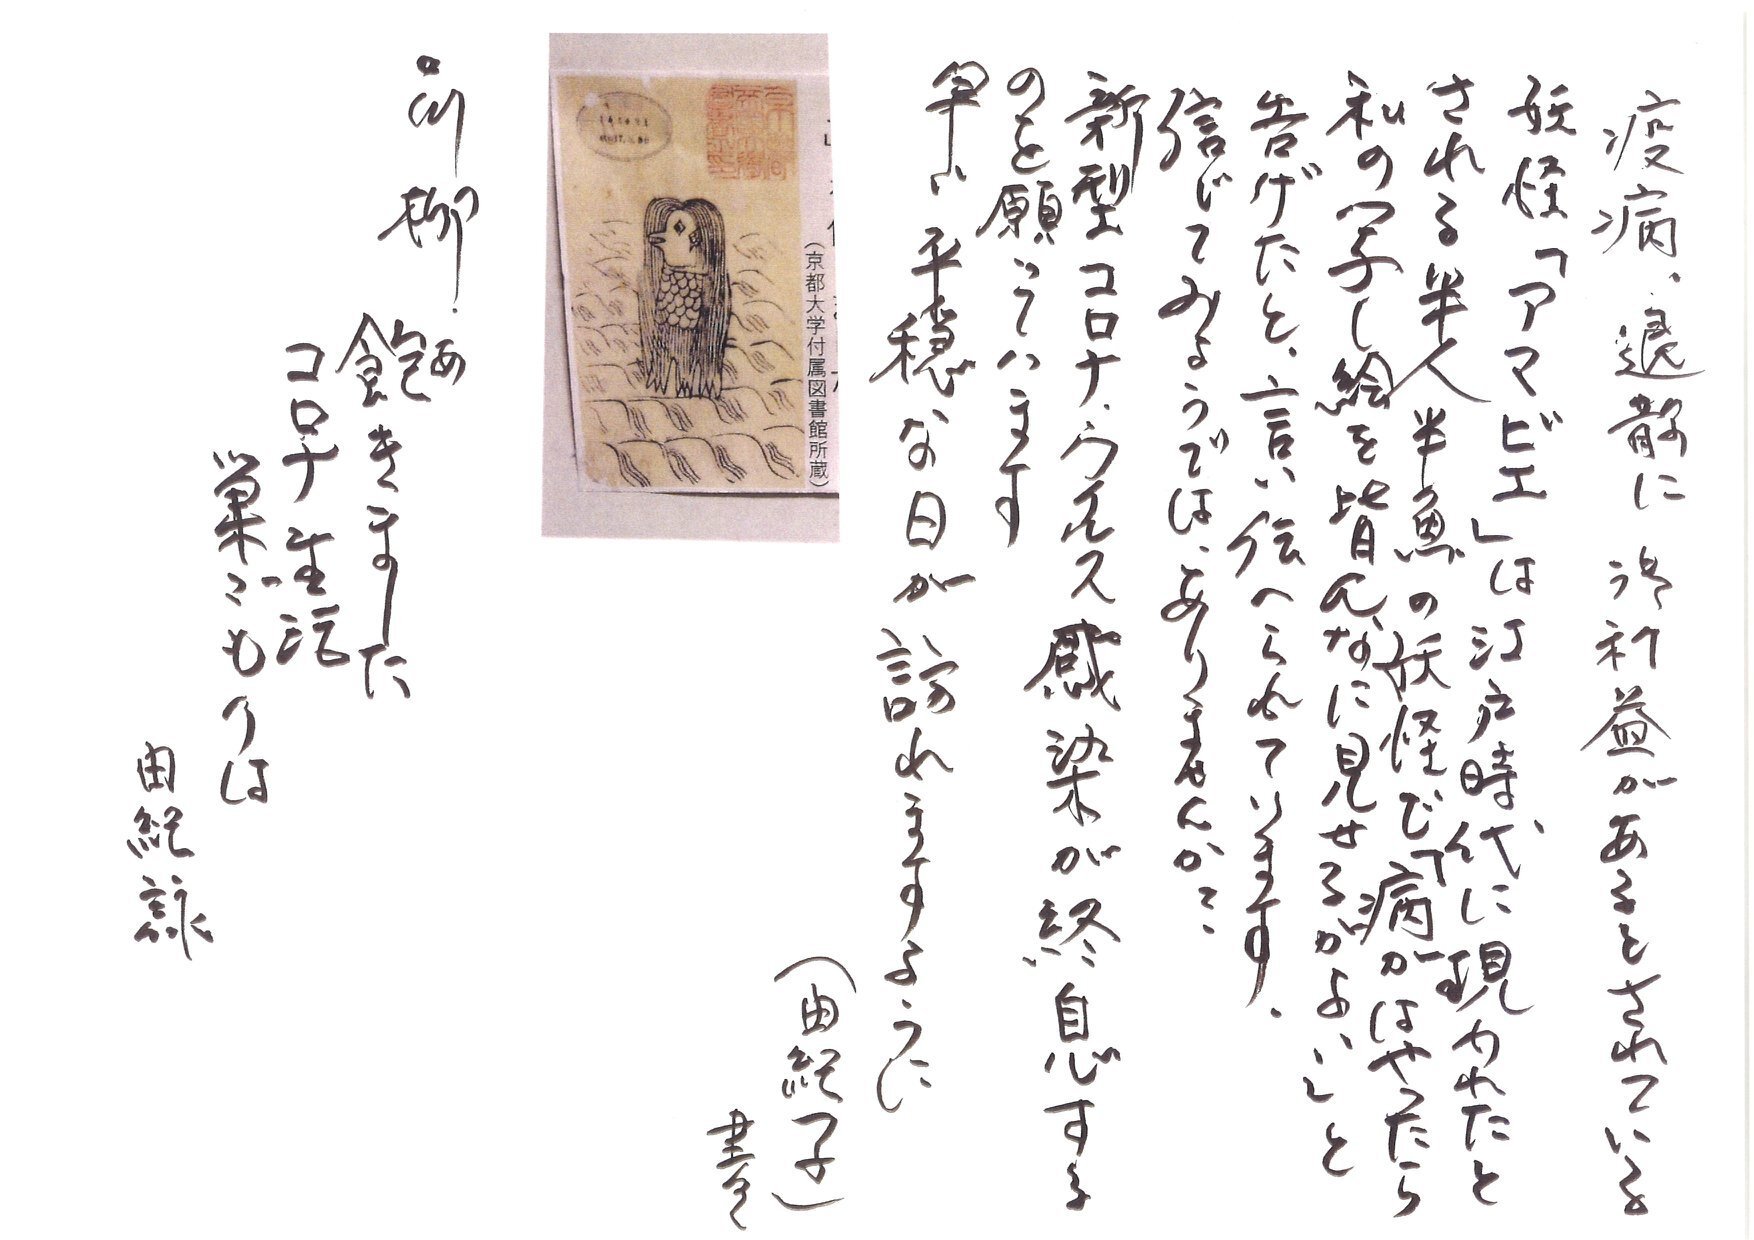 疫病、退散に御利益があるとされている
妖怪「アマビエ」は江戸時代に現われたと
される半人半魚の妖怪で「病がはやったら
私の写し絵を皆んなに見せるがよい」と
告げたと、言い伝へられています、
信じてみようではありませんかと、
新型コロナ、ウイルス感染が終息する
のを願っています
早い平穏な日が訪れますように
(由紀子)
書く
(京都大学付属図書館所蔵)
川柳
飽きました
あ
コロナ生活
巣ごもりは
由紀詠